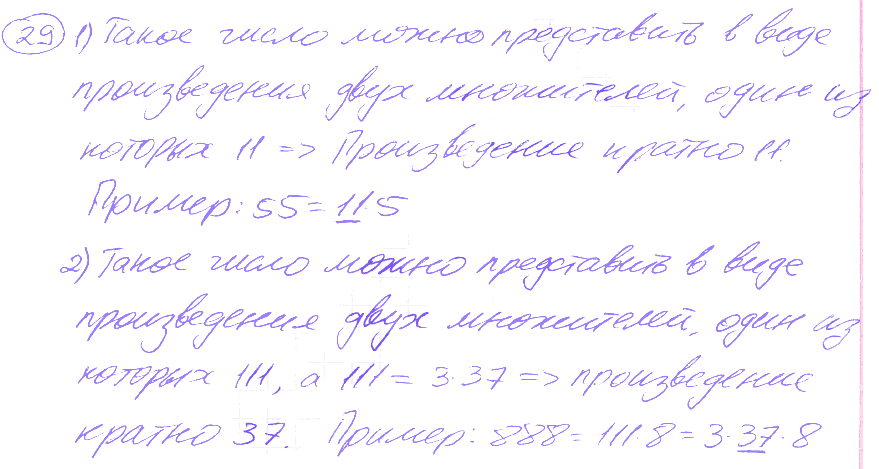 29 1) Такое число можно представить в виде
произведения двух множителей, один из
которых 11 => Произведение кратно 11.
Пример: 55 = 11·5
2) Такое число можно представить в виде
произведения двух множителей, один из
которых 111, а 111 = 3·37 => произведение
кратно 37. Пример: 888 = 111·8 = 3·37·8